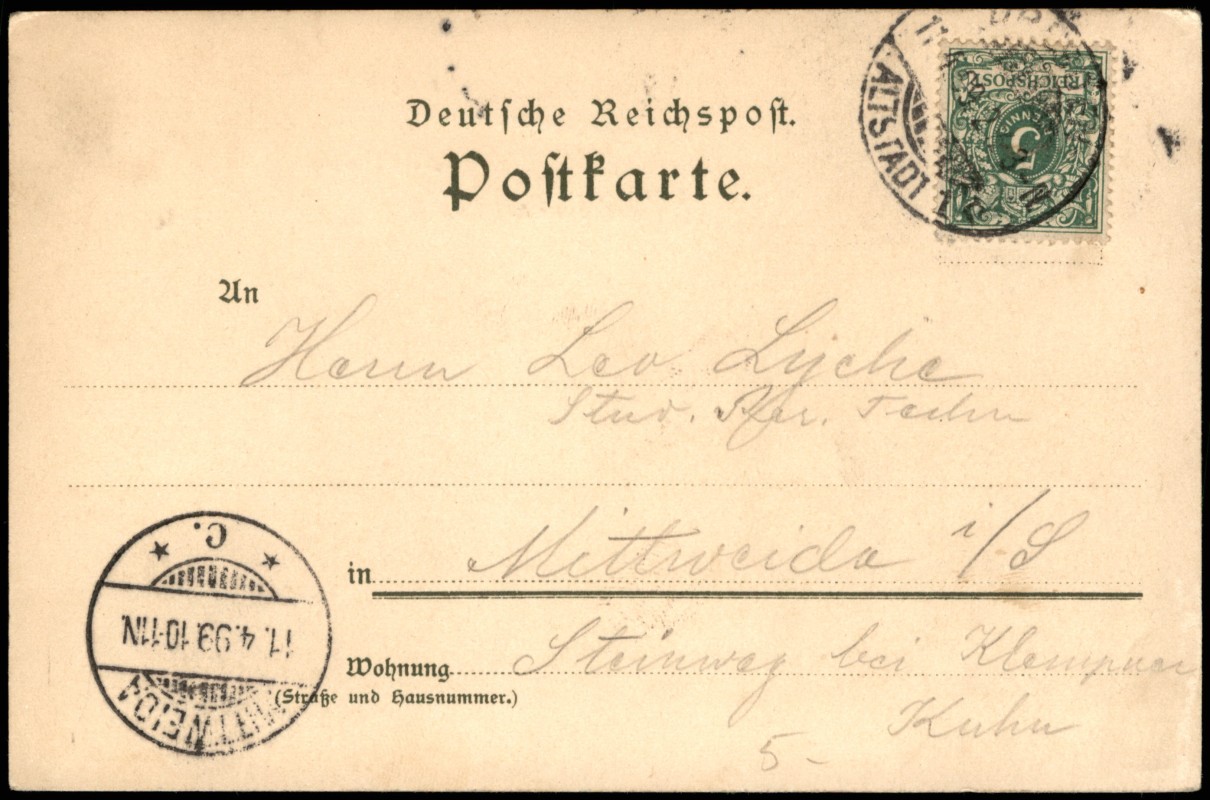 Deutsche Reichspost.
Postkarte.
REICHSPOST
5
PFENNIG
ALTSTADT
An
Herrn Leo Lyche
Stud. Techn
in Mittweida i/S
Wohnung Steinweg bei Klempner
(Straße und Hausnummer.)
Kuhn
5-
MITTWEIDA
11.4.99.10-11N.
* C. *